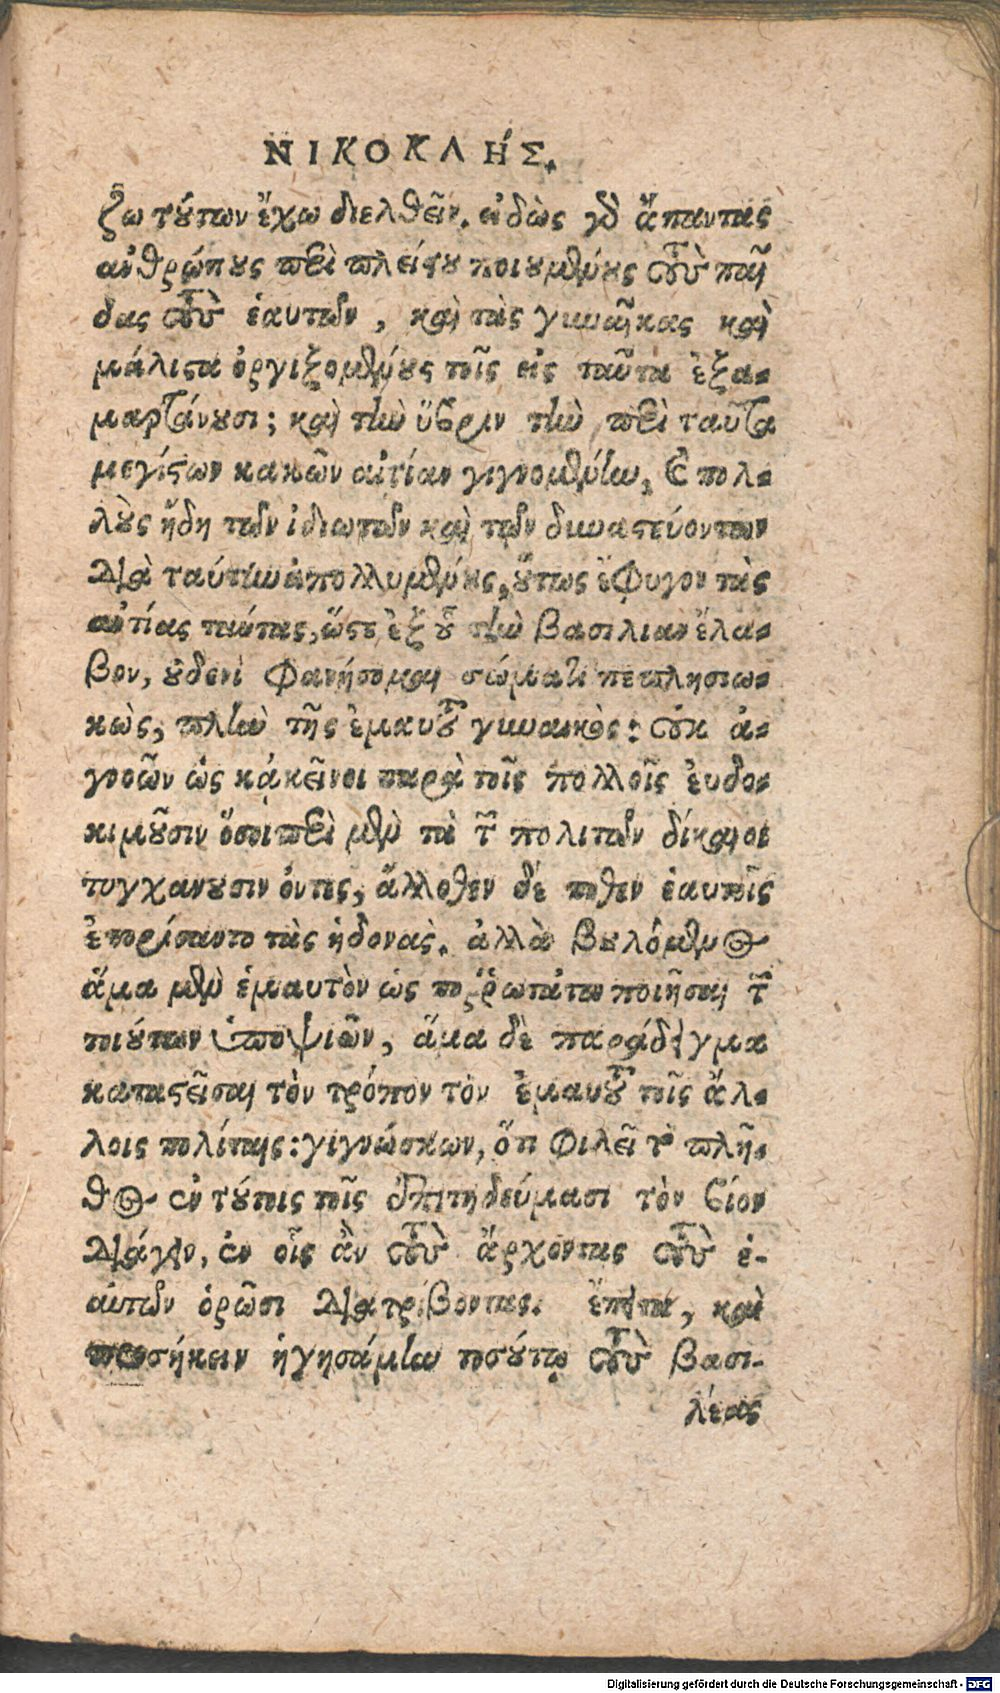 ΝΙΚΟΚΛΉΣ.
ζω τούτων ἔχω διελθεῖν. εἰδὼς γδ ἅπαντας
ἀνθρώπους περὶ πλείστου ποιουμένους τοὺς παῖ
δας τοὺς ἑαυτῶν, καὶ τὰς γυναῖκας καὶ
μάλιστα ὀργιζομένους τοῖς εἰς ταῦτα ἐξα-
μαρτάνουσι; καὶ τὴν ὕβριν τὴν περὶ ταῦτα
μεγίστων κακῶν αἰτίαν γιγνομένην, καὶ πολ-
λοὺς ἤδη τῶν ἰδιωτῶν καὶ τῶν δυναστεύοντων
διὰ ταύτην ἀπολλυμένους, οὕτως ἔφυγον τὰς
αἰτίας ταύτας, ὥστε ἐξ οὗ τὴν βασιλείαν ἔλα-
βον, οὐδενὶ φανήσομαι σώματι πεπλησιω-
κὼς, πλὴν τῆς ἐμαυτοῦ γυναικός: οὐκ ἀ-
γνοῶν ὡς κἀκεῖνοι παρὰ τοῖς πολλοῖς ἐυδο-
κιμοῦσιν ὅσοι περὶ μὲν τὰ τῶν πολιτῶν δίκαιοι
τυγχανουσιν ὄντες, ἄλλοθεν δέ ποθεν ἑαυτοῖς
ἐπορίσαντο τὰς ἡδονὰς. ἀλλὰ βουλόμενος
ἅμα μὲν ἐμαυτὸν ὡς πορρωτάτω ποιῆσαι τῶν
τοιούτων ὑποψιῶν, ἅμα δὲ παράδειγμα
καταστεῖσαι τὸν τρόπον τὸν ἐμαυτοῦ τοῖς ἄλ-
λοις πολίταις: γιγνώσκων, ὅτι φιλεῖ τὸ πλῆ-
θος ἐν τούτοις τοῖς ἐπιτηδεύμασι τὸν βίον
διάγειν, ἐν οἷς ἂν τοὺς ἄρχοντας τοὺς ἑ-
αυτῶν ὁρῶσι διατρίβοντας. ἔπειτα, καὶ
προσήκειν ἡγησάμην τοσούτῳ τοὺς βασι-
λέας
Digitalisierung gefördert durch die Deutsche Forschungsgemeinschaft - DFG